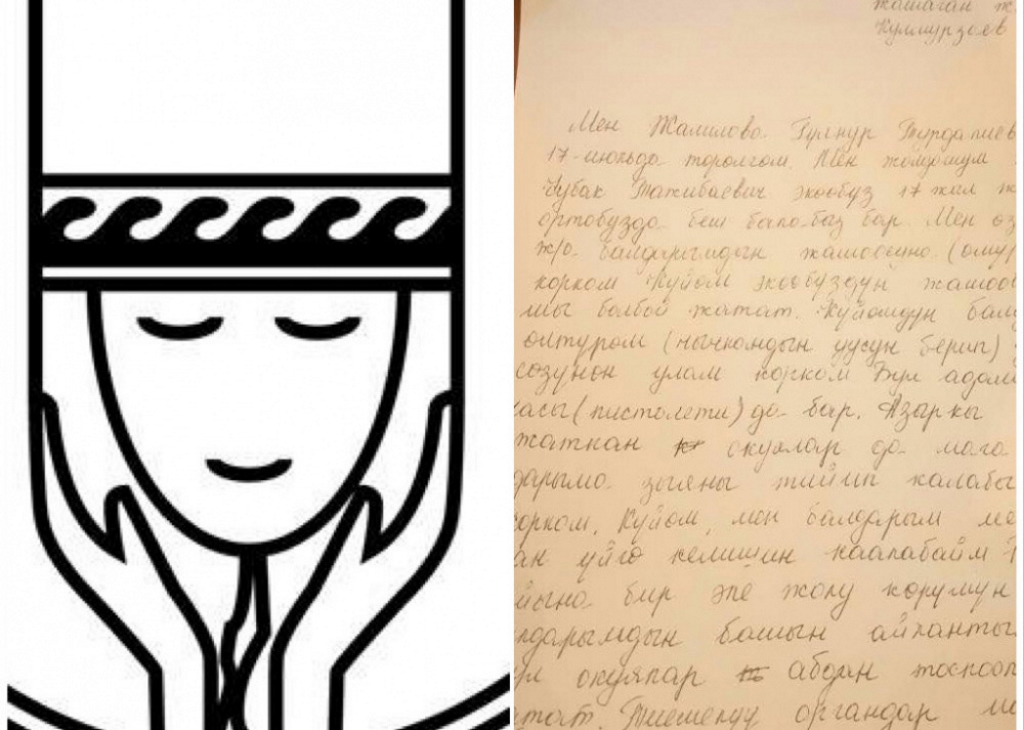 жашаган ж.
Кулмурзаев
Мен Жамилова Гулнур Турдалиев
17-июньда торолгом. Мен жолдошум
Чубак Тажибаевич экообуз 17 жыл ж
ортобуздо беш бала-быз бар. Мен өз
ж/о балдарымдын жашоосуно (өмү
корком Куйом экообуздун жашоо
мы болбой жатат. Куйомдун бала
олтуром (чычкондын уусун берип)
созунон улам корком Бул адам
асы (пистолети) да бар. Азыркы
жаткан окуялар да мага
дарыма зыяны тийип калабы
орком. Куйом, мен балдарым ме
ан уйго келишин каалабайм
йына бир эле жолу корумун
лдарымдын башын айланты
ул окуялар абдан тоспоол
тат. Тиешелүү органдар ма